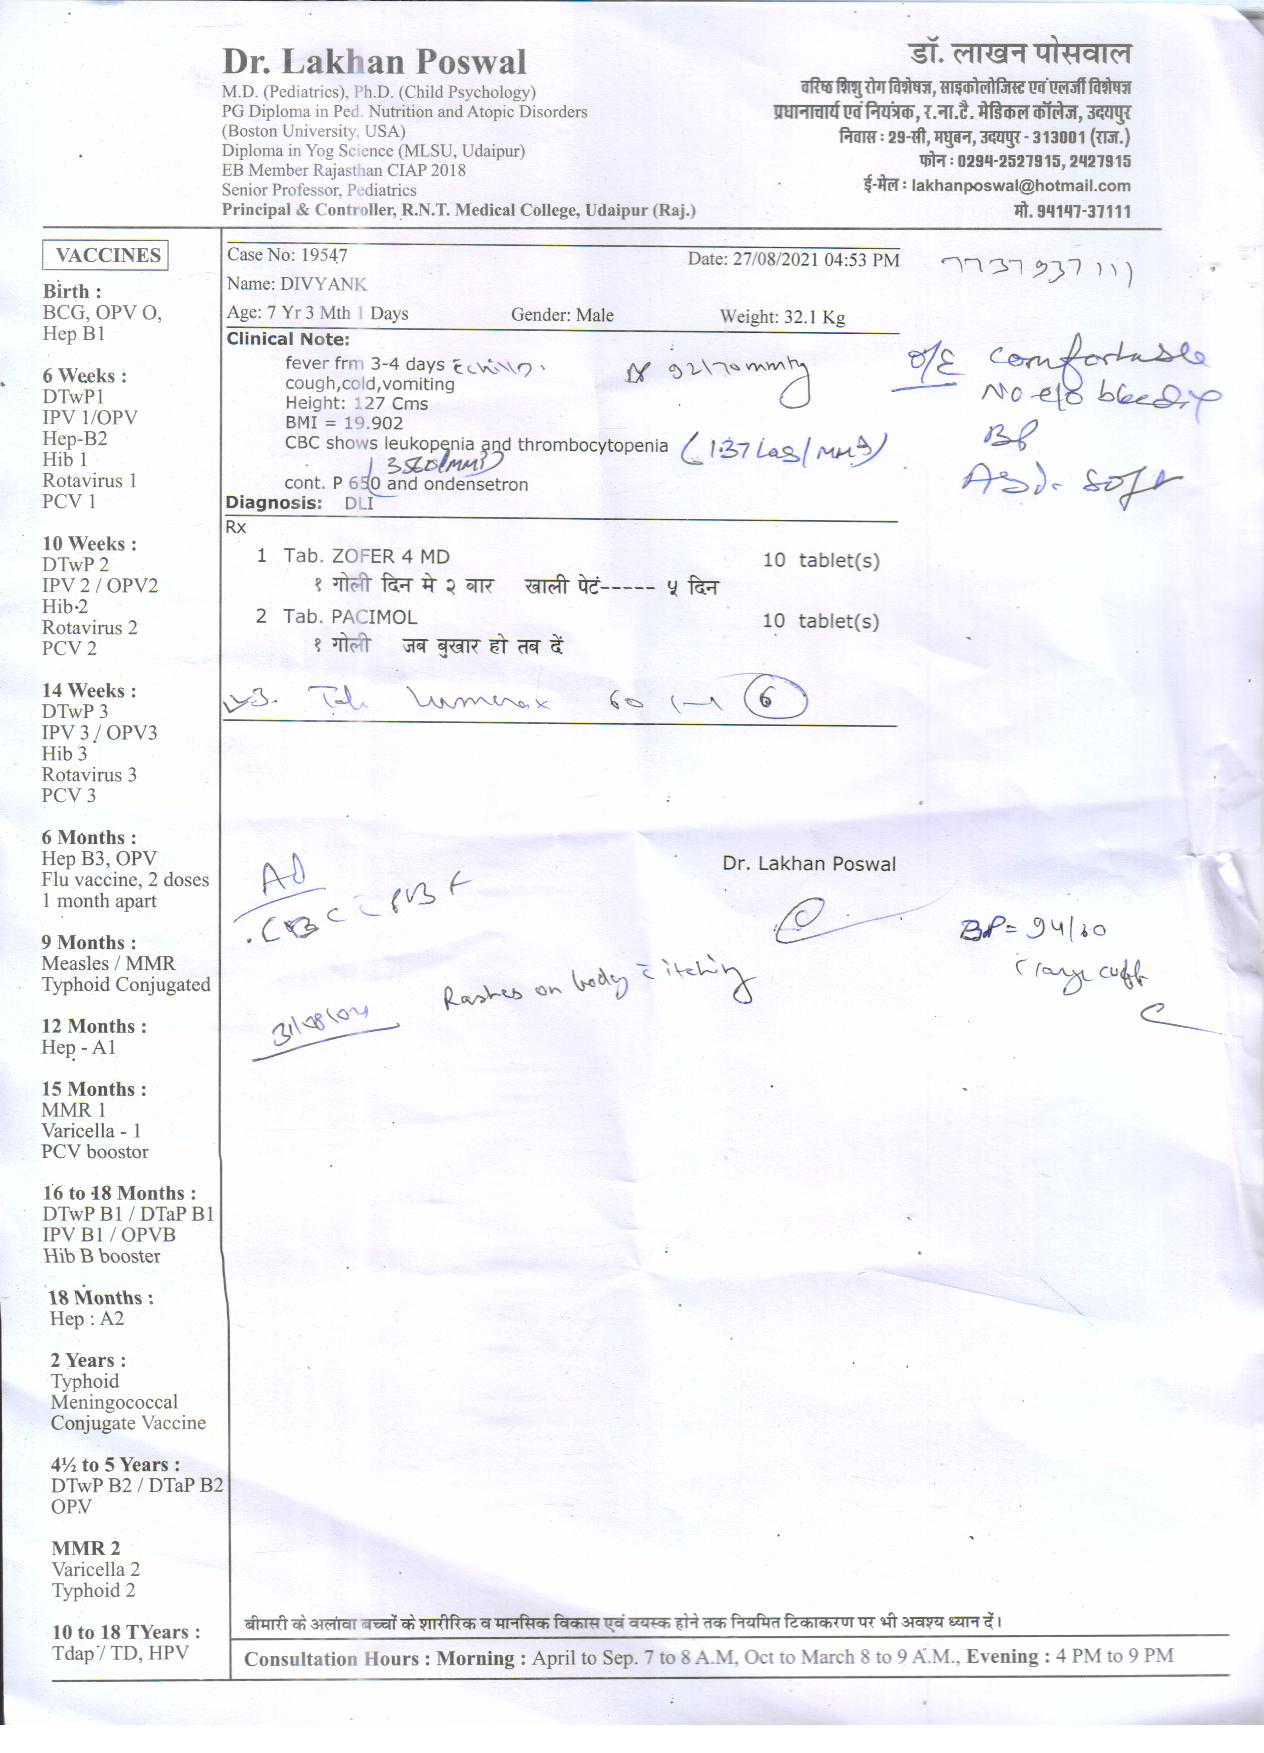 Dr. Lakhan Poswal
M.D. (Pediatrics), Ph.D. (Child Psychology)
PG Diploma in Ped. Nutrition and Atopic Disorders
(Boston University, USA)
Diploma in Yog Science (MLSU, Udaipur)
EB Member Rajasthan CIAP 2018
Senior Professor, Pediatrics
Principal & Controller, R.N.T. Medical College, Udaipur (Raj.)
डॉ. लाखन पोसवाल
वरिष्ठ शिशु रोग विशेषज्ञ, साइकोलोजिस्ट एवं एलर्जी विशेषज्ञ
प्रधानाचार्य एवं नियंत्रक, र.ना.टै. मेडिकल कॉलेज, उदयपुर
निवास : 29-सी, मधुबन, उदयपुर - 313001 (राज.)
फोन : 0294-2527915, 2427915
ई-मेल : lakhanposwal@hotmail.com
मो. 94147-37111
VACCINES
Birth :
BCG, OPV O,
Hep B1
6 Weeks :
DTwP1
IPV 1/OPV
Hep-B2
Hib 1
Rotavirus 1
PCV 1
10 Weeks :
DTwP 2
IPV 2 / OPV2
Hib 2
Rotavirus 2
PCV 2
14 Weeks :
DTwP 3
IPV 3 / OPV3
Hib 3
Rotavirus 3
PCV 3
6 Months :
Hep B3, OPV
Flu vaccine, 2 doses
1 month apart
9 Months :
Measles / MMR
Typhoid Conjugated
12 Months :
Hep - A1
15 Months :
MMR 1
Varicella - 1
PCV boostor
16 to 18 Months :
DTwP B1 / DTaP B1
IPV B1 / OPVB
Hib B booster
18 Months :
Hep : A2
2 Years :
Typhoid
Meningococcal
Conjugate Vaccine
4½ to 5 Years :
DTwP B2 / DTaP B2
OPV
MMR 2
Varicella 2
Typhoid 2
10 to 18 TYears :
Tdap / TD, HPV
Case No: 19547 Date: 27/08/2021 04:53 PM 7737937111
Name: DIVYANK
Age: 7 Yr 3 Mth 1 Days Gender: Male Weight: 32.1 Kg
Clinical Note:
fever frm 3-4 days 92/70 mmHg
cough,cold,vomiting
Height: 127 Cms
BMI = 19.902
CBC shows leukopenia and thrombocytopenia (1.37 Lacs/mm3)
cont. P 650 and ondensetron
Diagnosis: DLI
O/E comfortable
No e/o bleeding
Abd. soft
Rx
1 Tab. ZOFER 4 MD 10 tablet(s)
१ गोली दिन मे २ बार खाली पेटं------ ५ दिन
2 Tab. PACIMOL 10 tablet(s)
१ गोली जब बुखार हो तब दें
3. Tab Lumerax 60 6
Dr. Lakhan Poswal
Ad
CBC c PBF
BP = 94/60
c large cuff
Rashes on body c itching
बीमारी के अलावा बच्चों के शारीरिक व मानसिक विकास एवं वयस्क होने तक नियमित टिकाकरण पर भी अवश्य ध्यान दें।
Consultation Hours : Morning : April to Sep. 7 to 8 A.M, Oct to March 8 to 9 A.M., Evening : 4 PM to 9 PM